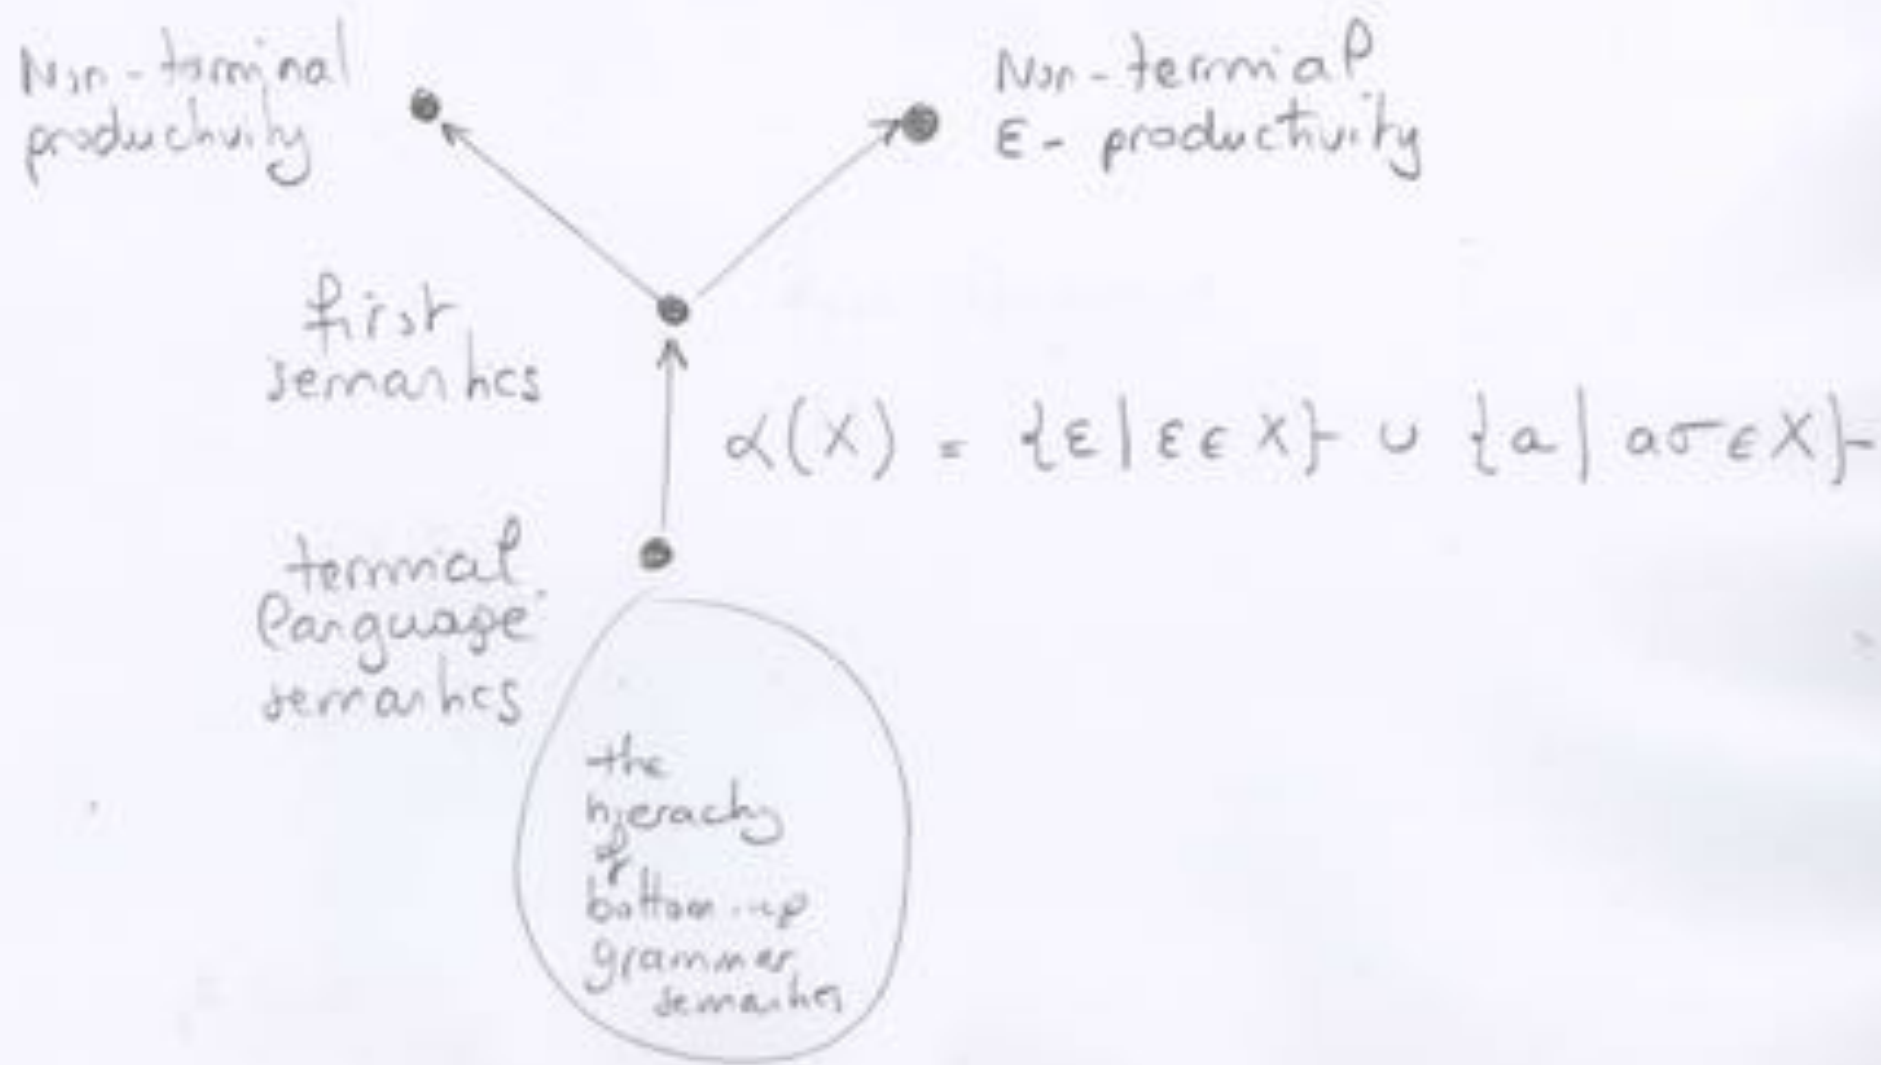 Non-terminal
productivity
Non-termial
ε- productivity
first
semantics
α(X) = {ε | ε ∈ X} ∪ {a | aσ ∈ X}
termial
language
semantics
the
hierachy
of
bottom-up
grammar
semantics